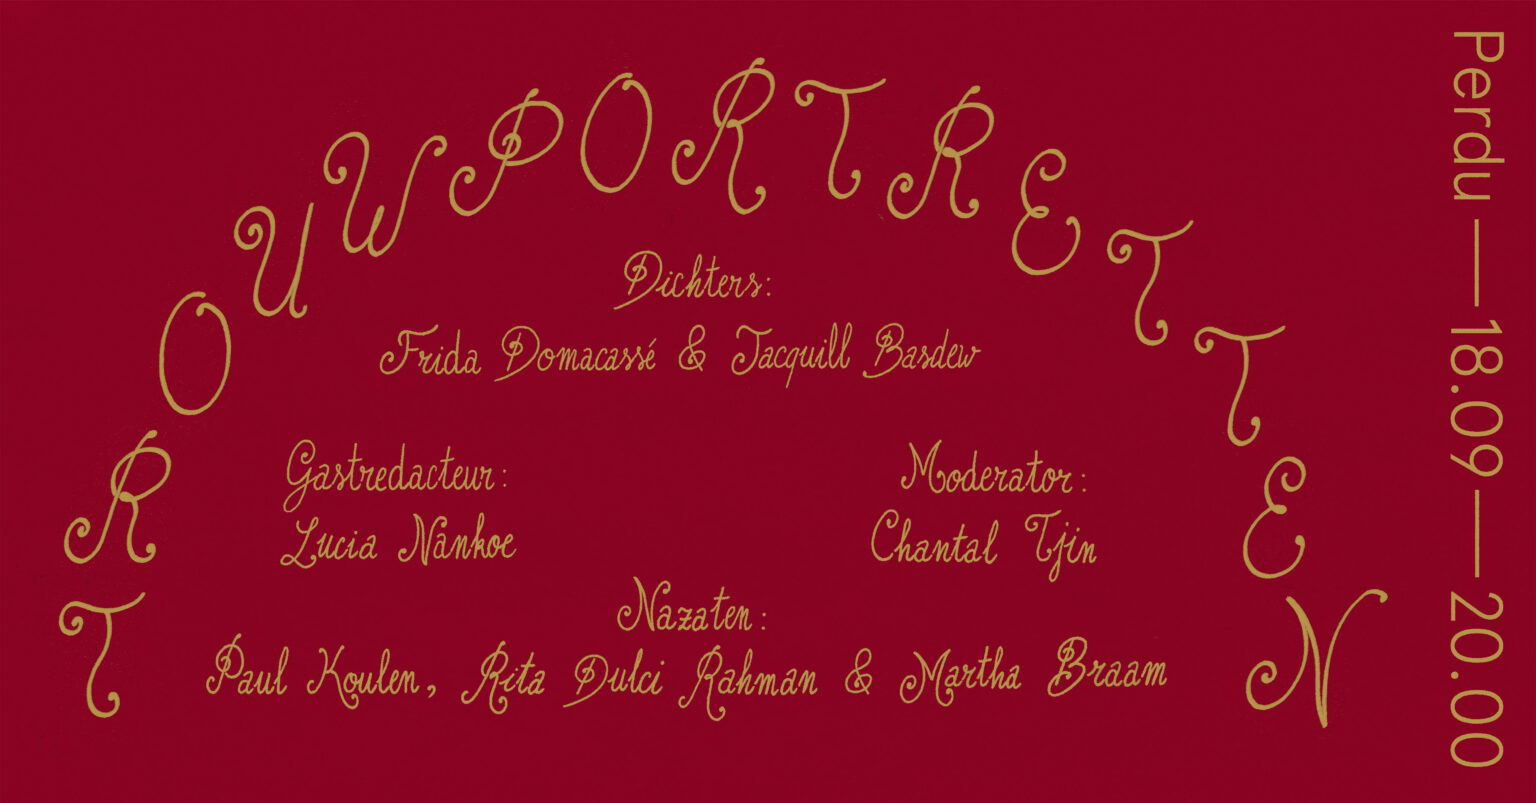 TROUWPORTRETTEN
Dichters:
Frida Domacassé & Jacquill Basdew
Gastredacteur:
Lucia Nankoe
Moderator:
Chantal Tjin
Nazaten:
Paul Koulen, Rita Dulci Rahman & Martha Braam
Perdu — 18.09 — 20.00